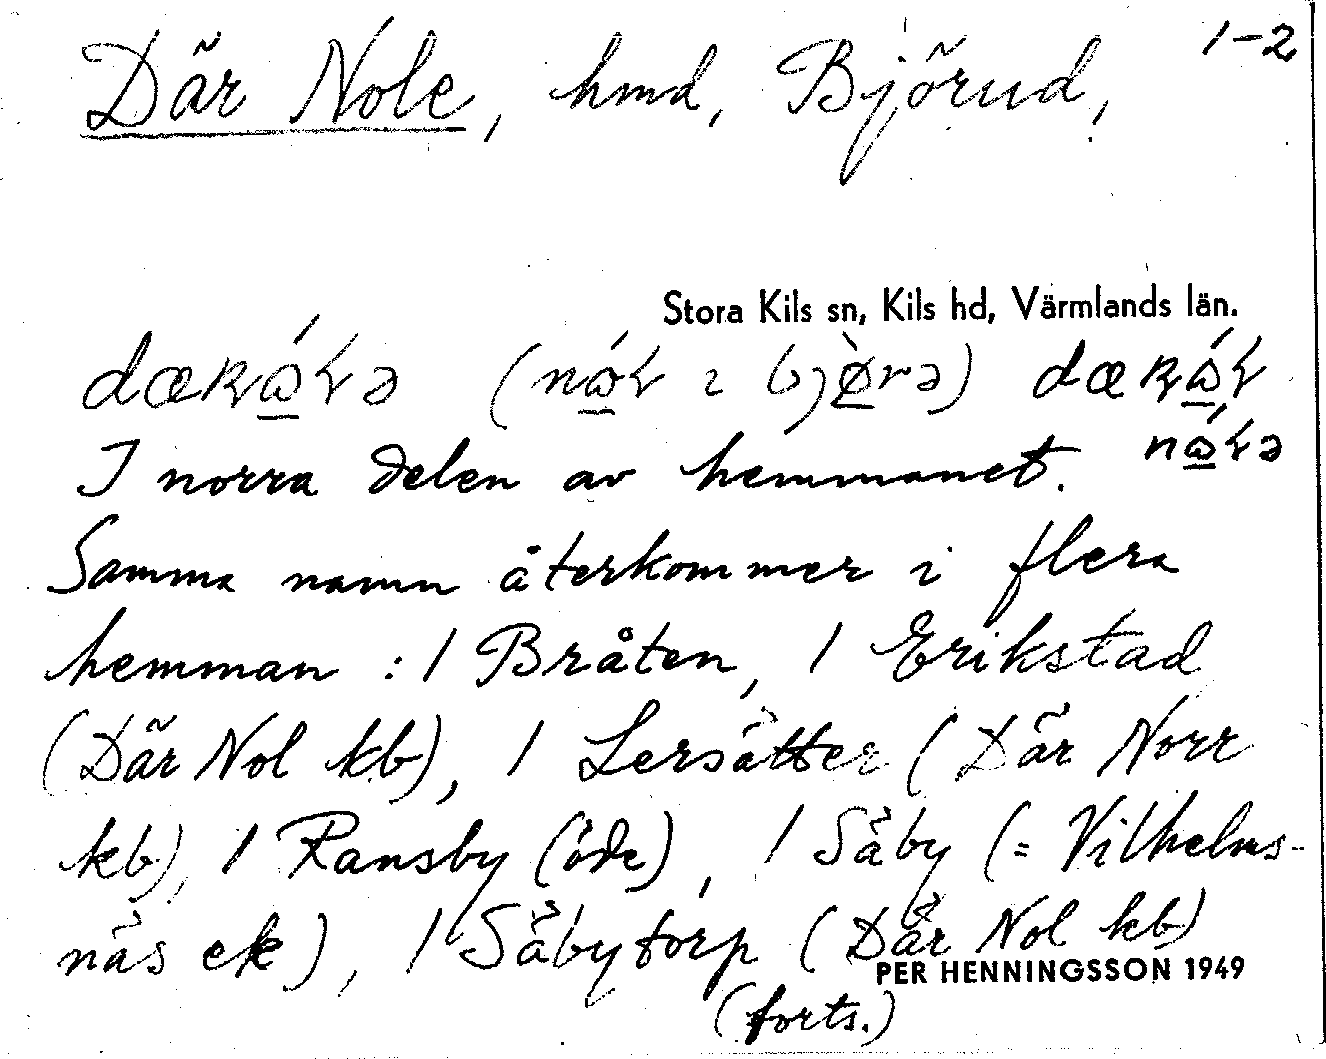 1-2
Där Nole, hmd, Björud,
Stora Kils sn, Kils hd, Värmlands län.
I norra delen av hemmanet.
Samma namn återkommer i flera
hemman : 1 Bråten, 1 Erikstad
(Där Nol kb), 1 Lersätter (Där Norr
kb), 1 Ransby (öde), 1 Såby (= Vilhelms-
näs ek), 1 Såbytorp (Där Nol kb)
PER HENNINGSSON 1949
(forts.)